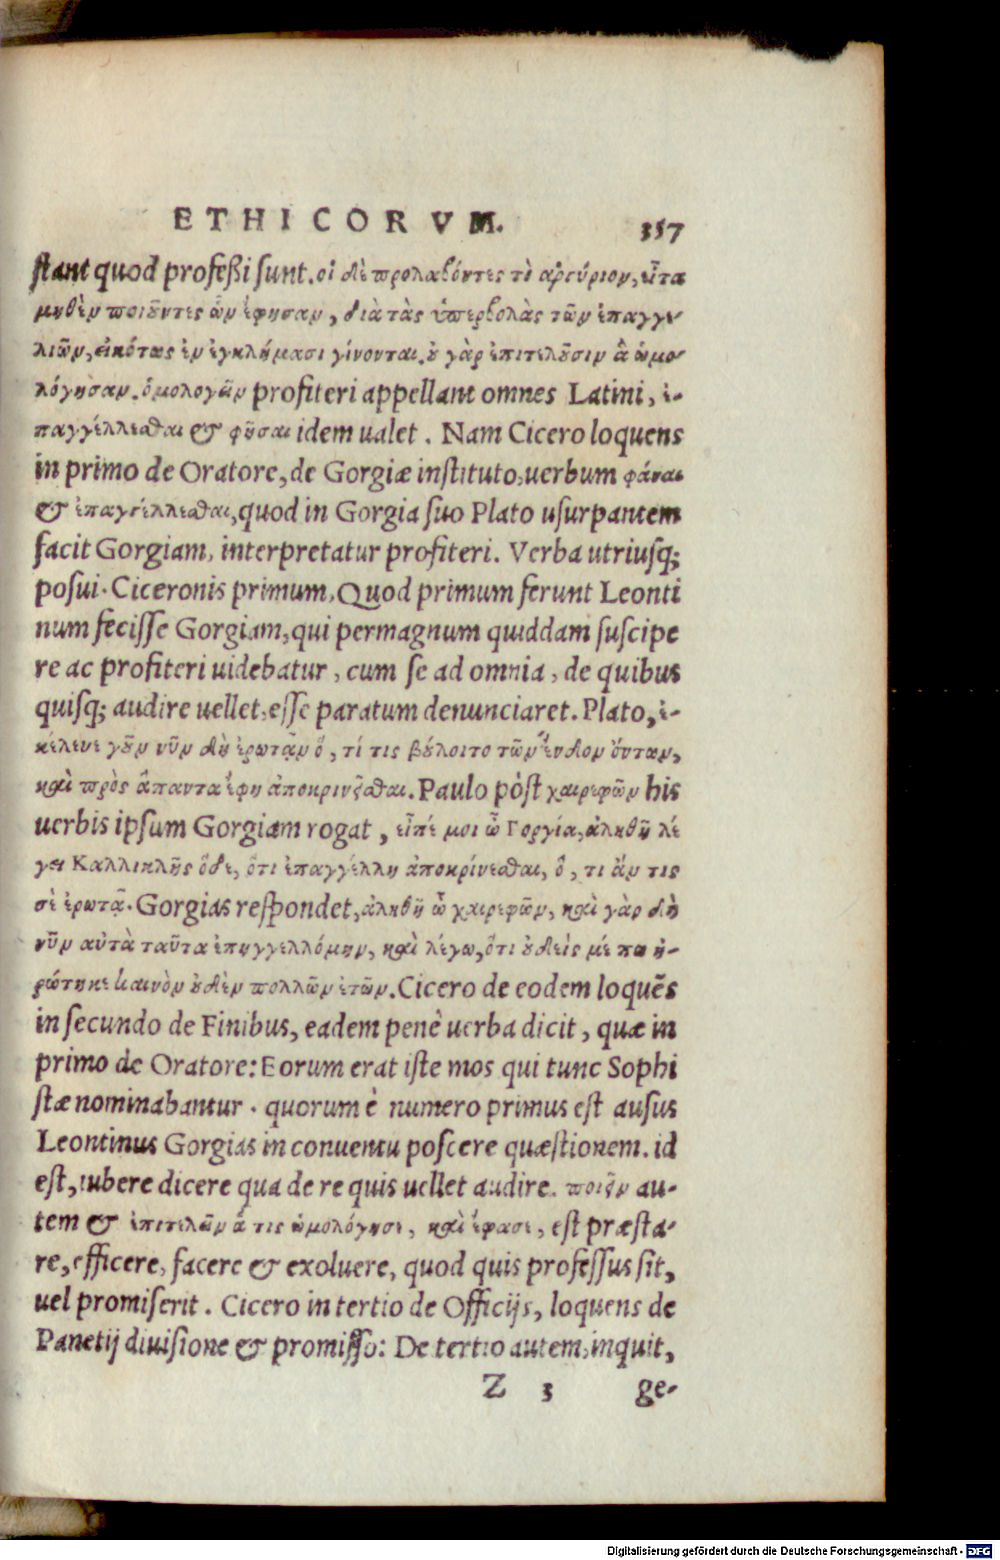 ETHICORVM. 357
stant quod professi sunt. οἱ δὲ προλαβόντες τὸ ἀργύριον, εἶτα
μηθὲν ποιοῦντες ὧν ἔφησαν, διὰ τὰς ὑπερβολὰς τῶν ἐπαγγε
λιῶν, εἰκότως ἐν ἐγκλήμασι γίνονται. οὐ γὰρ ἐπιτελοῦσιν ἃ ὡμο-
λόγησαν. ὁμολογεῖν profiteri appellant omnes Latini, ἐ-
παγγέλλεσθαι & φῆσαι idem ualet. Nam Cicero loquens
in primo de Oratore, de Gorgiæ instituto, uerbum φάναι
& ἐπαγγέλλεσθαι, quod in Gorgia suo Plato usurpantem
facit Gorgiam, interpretatur profiteri. Verba utriusq;
posui. Ciceronis primum, Quod primum ferunt Leonti
num fecisse Gorgiam, qui permagnum quiddam suscipe
re ac profiteri uidebatur, cum se ad omnia, de quibus
quisq; audire uellet, esse paratum denunciaret. Plato, ἐ-
κέλευε γοῦν νῦν δὴ ἐρωτᾷν ὅ, τί τις βούλοιτο τῶν ἔνδον ὄντων,
καὶ πρὸς ἅπαντα ἔφη ἀποκρινεῖσθαι. Paulo pòst χαιρεφῶν his
uerbis ipsum Gorgiam rogat, εἰπέ μοι ὦ Γοργία, ἀληθῆ λέ
γει Καλλικλῆς ὅδε, ὅτι ἐπαγγέλλῃ ἀποκρίνεσθαι, ὅ, τι ἄν τις
σὲ ἐρωτᾷ. Gorgias respondet, ἀληθῆ ὦ χαιρεφῶν, καὶ γὰρ δὴ
νῦν αὐτὰ ταῦτα ἐπηγγελλόμην, καὶ λέγω, ὅτι οὐδείς μέ πω ἠ-
ρώτηκε καινὸν οὐδὲν πολλῶν ἐτῶν. Cicero de eodem loquēs
in secundo de Finibus, eadem penè uerba dicit, quæ in
primo de Oratore: Eorum erat iste mos qui tunc Sophi
stæ nominabantur. quorum è numero primus est ausus
Leontinus Gorgias in conuentu poscere quæstionem. id
est, iubere dicere qua de re quis uellet audire. ποιεῖν au-
tem & ἐπιτελεῖν ἅ τις ὡμολόγησε, καὶ ἔφασε, est præsta-
re, efficere, facere & exoluere, quod quis professus sit,
uel promiserit. Cicero in tertio de Officijs, loquens de
Panetij diuisione & promisso: De tertio autem, inquit,
Z 3 ge-
Digitalisierung gefördert durch die Deutsche Forschungsgemeinschaft - DFG